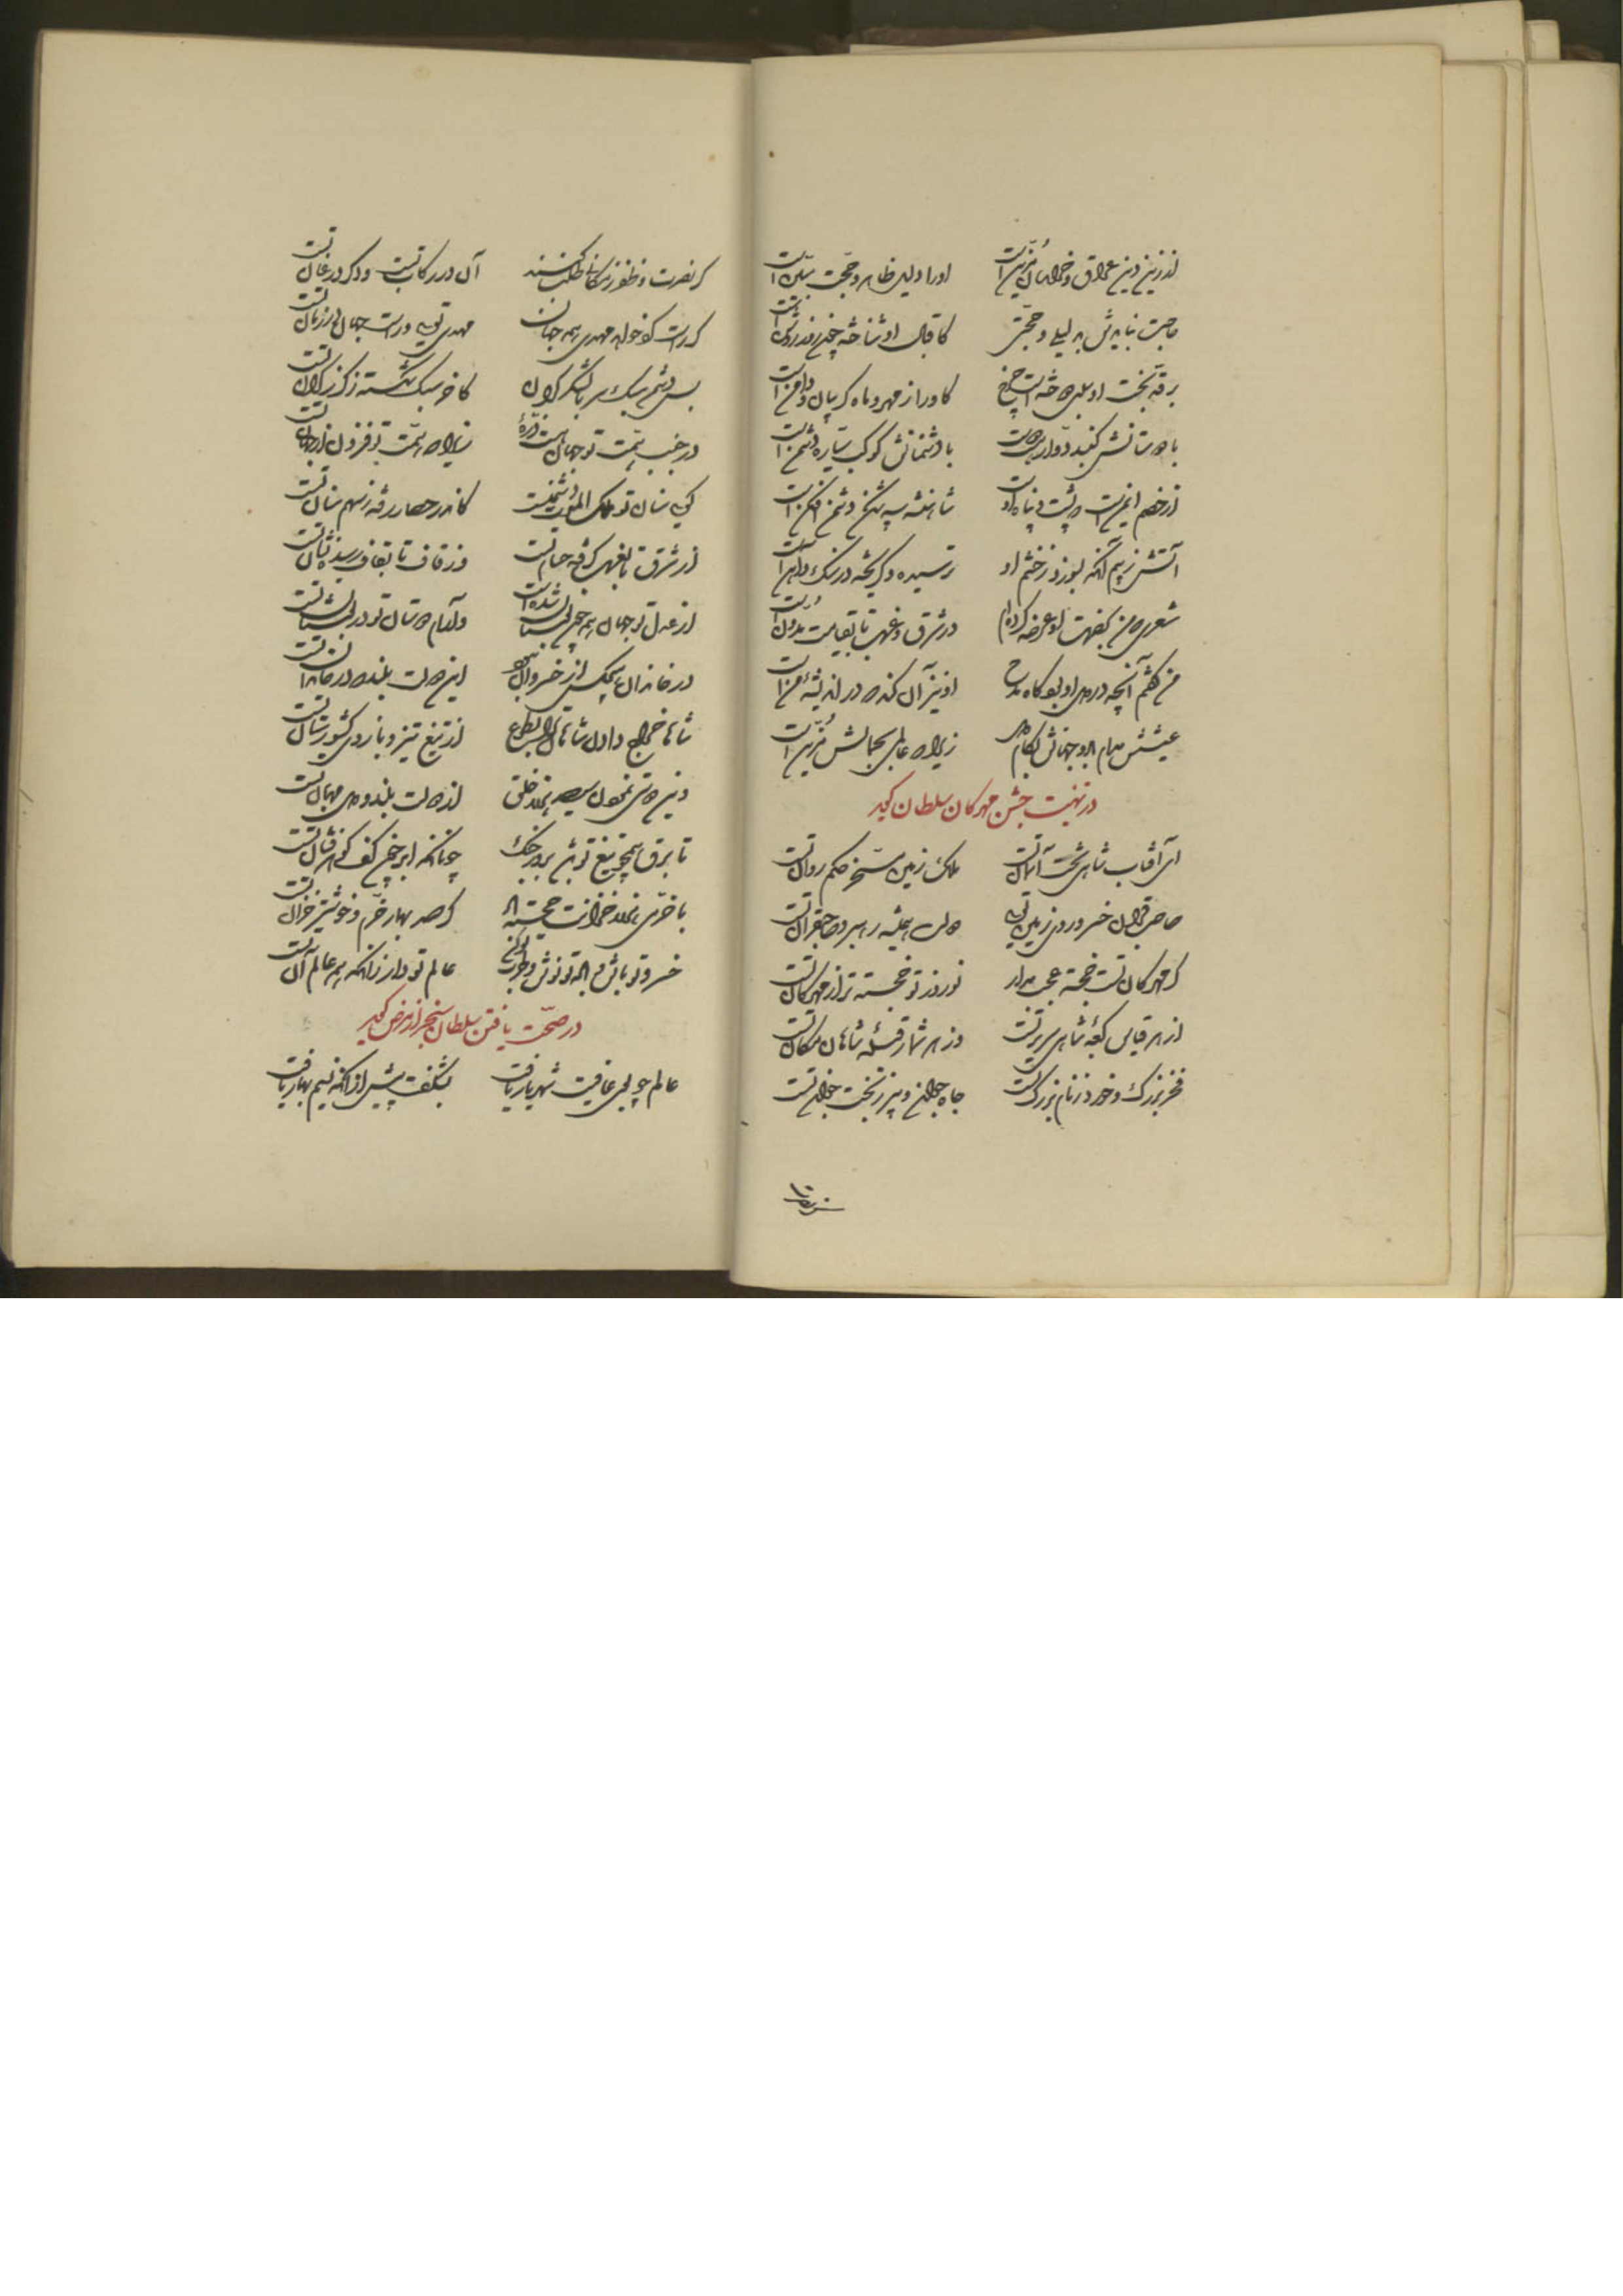 او را دلیل ظاهر و حجت مبین است
حاجت نیایدش به دلیلی و حجتی کاقبال او شناخته چون روز روشن است
بر قد بخت او کاو را ز مهر و ماه گریبان و دامن است
با دوستانش گنبد دوار با دشمنانش کوکب سیاره دشمن است
از خصم ایمن است که پشت و پناه او شاهنشه سپه شکن دشمن افکن است
آتش ز بیم آنکه بسوزد ز خشم او ترسیده و گریخته در سنگ و آهن است
شعری که من بحضرت او عرضه کرده‌ام در شرق و غرب تا بقیامت مدون است
من گفتم آنچه در دل او بود گاه مدح او نیز آن کند که در اندیشه من است
عیشش مدام باد و جهانش بکام دل زیرا که عالمی بجمالش مزین است
در تهنیت جشن مهرکان سلطان گوید
ای آفتاب شاهی تخت آسمان تست ملک زمین مسخر حکم روان تست
صاحبقران و خسرو روی زمین تویی دولت همیشه رهبر صاحبقران تست
گر مهرکان تست خجسته عجب مدار نوروز تو خجسته‌تر از مهرکان تست
از هر قیاس کعبه شاهی سریر تست وز هر شمار قبله شاهان مکان تست
فخر بزرگ و خرد ز نام بزرگ تست جاه جوان و پیر ز بخت جوان تست
گر نصرت و ظفر ز مکانها طلب کنند آن در رکاب تست و دگر در عنان تست
گر راست گو خواهد مهدی همه جهان مهدی تویی و راست جهان در زمان تست
بس دشمن سبک سر با لشکر گران کاخر سبک شکسته ز گرز گران تست
در جنب همت تو جهان هست ذره زیرا که همت تو فزون از جهان تست
گویی سنان تو ملک الموت دشمنست کاندر حصار رفته ز سهم سنان تست
از شرق تا بغرب گرفته حسام تست وز قاف تا بقاف رسیده نشان تست
از عدل تو جهان همه چون بوستان شده است و آرام دوستان تو در بوستان تست
در خاندان هیچکس از خسروان نبود این دولت بلند که در خاندان تست
شاها خراج دادن شاهان بطوع از تیغ تیز و بازوی کشورستان تست
از دولت بلند و دل مهربان تست
تا برق همچو تیغ تو باشد بروز جنگ چونانکه ابر چون کف گوهرفشان تست
با خرمی خزانت خجسته باد کز صد بهار خرم و خوشتر خزان تست
خسرو تو باش و باده تو نوش و طرب تو کن عالم تو دار زانکه همه عالم آن تست
در صحت یافتن سلطان سنجر از مرض گوید
عالم چو بوی عافیت شهریار یافت بشکفت پیش از آنکه نسیم بهار یافت